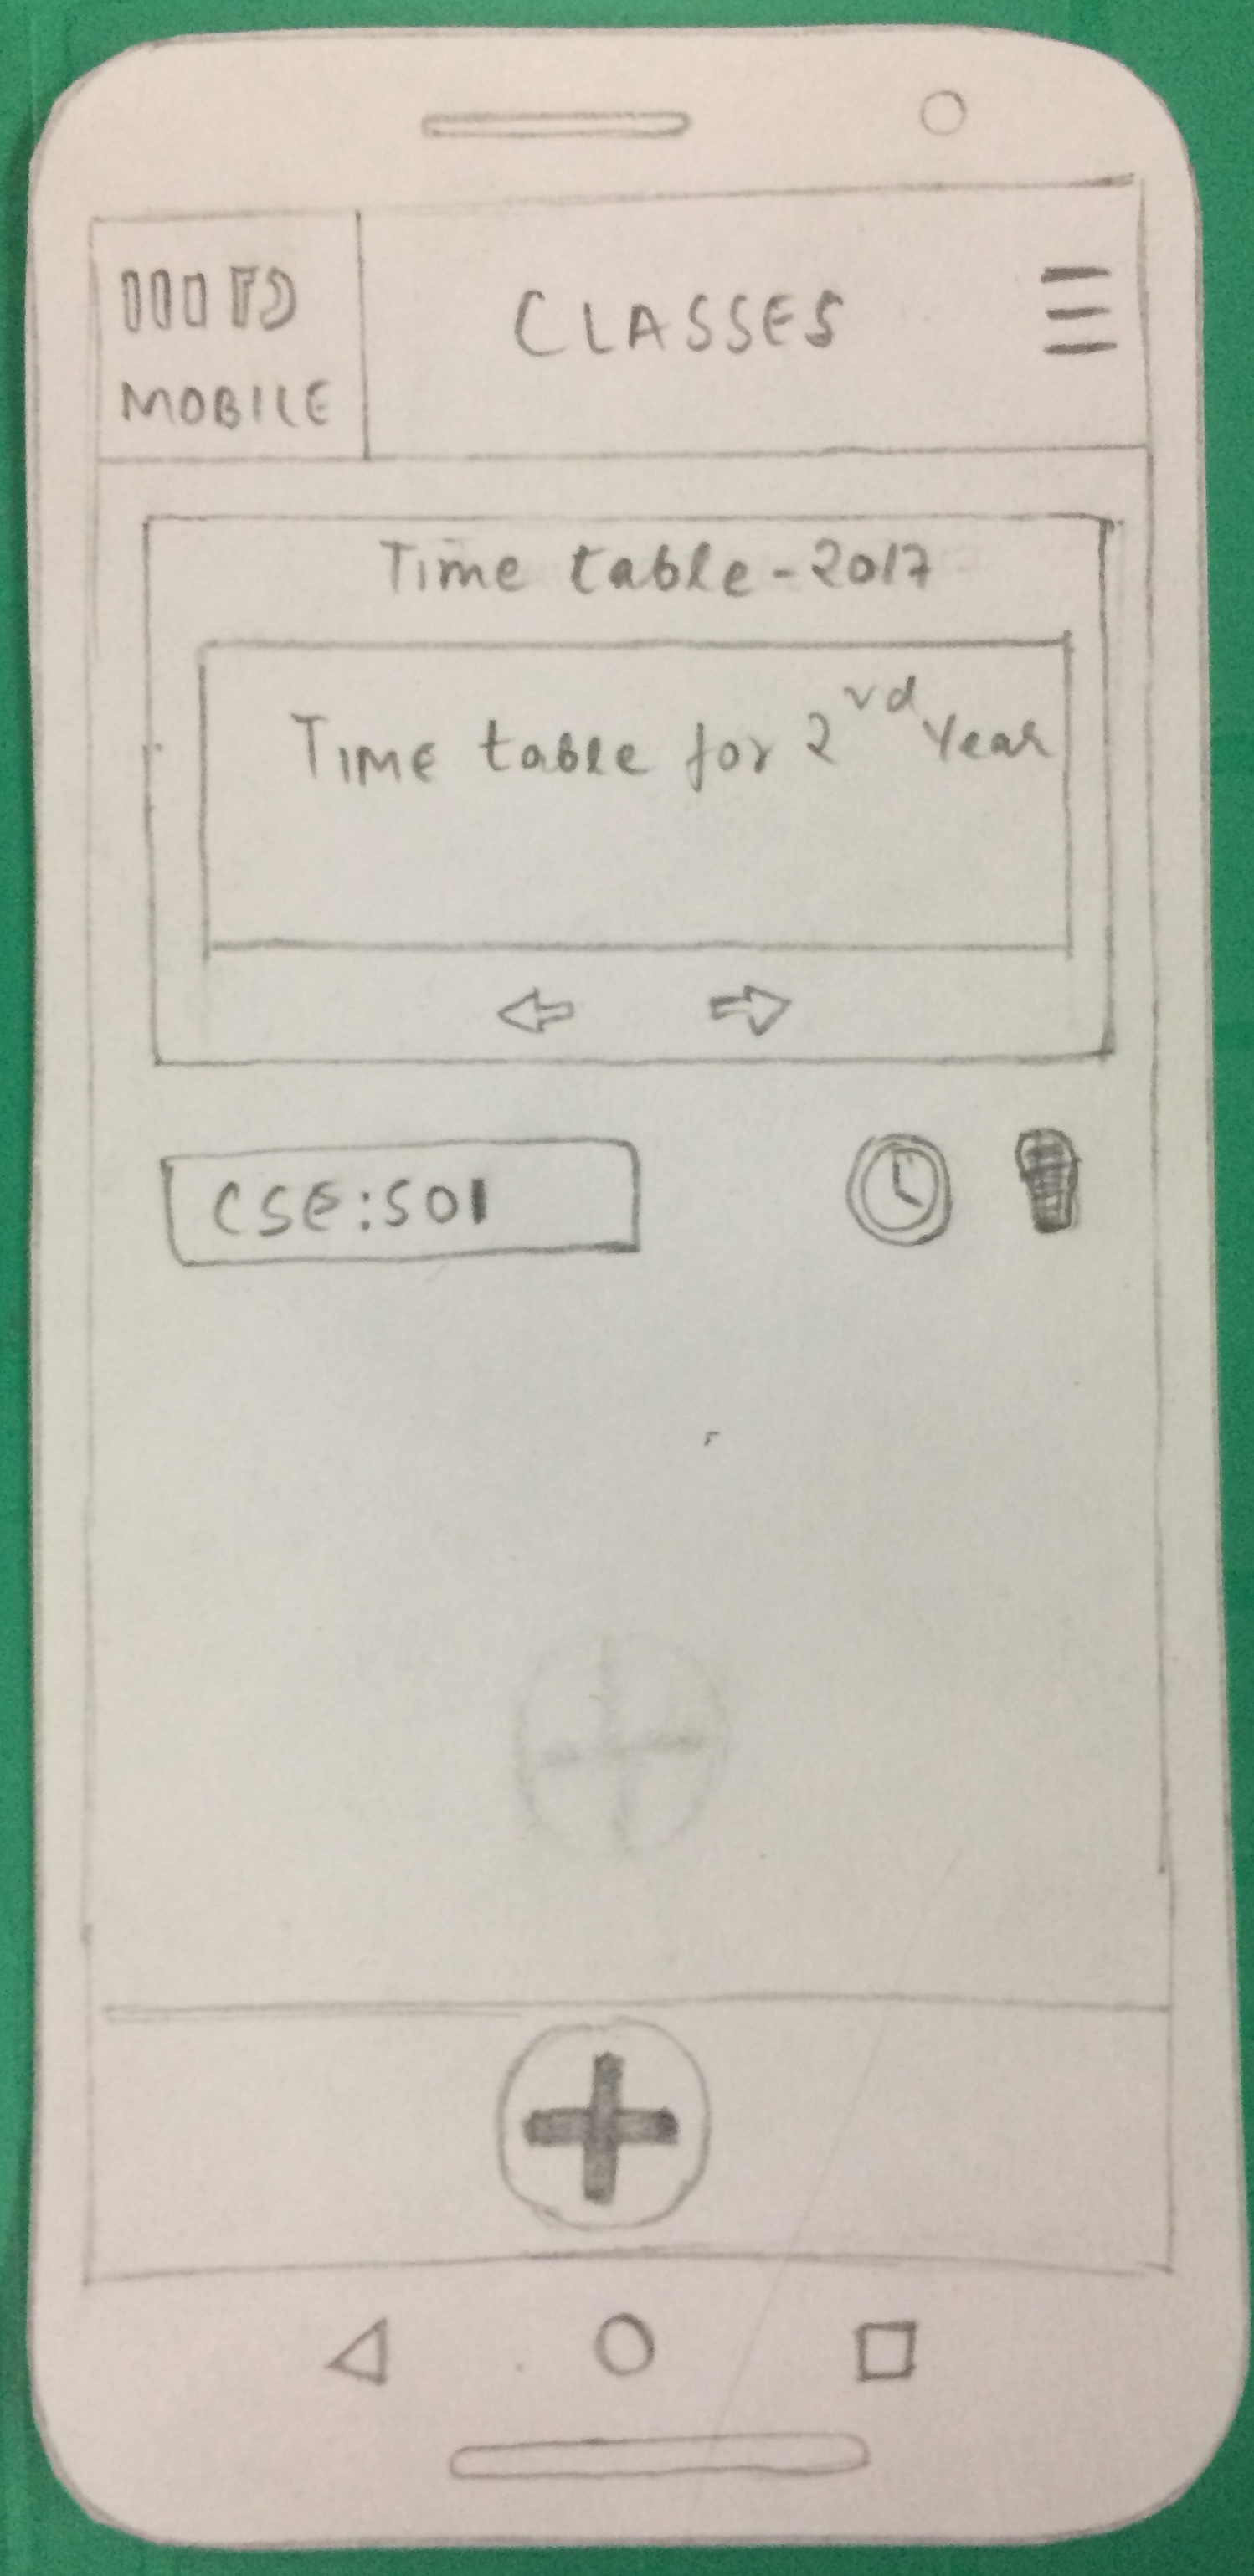 IIITD
MOBILE
CLASSES
Time table - 2017
TIME table for 2rd Year
CSE:501